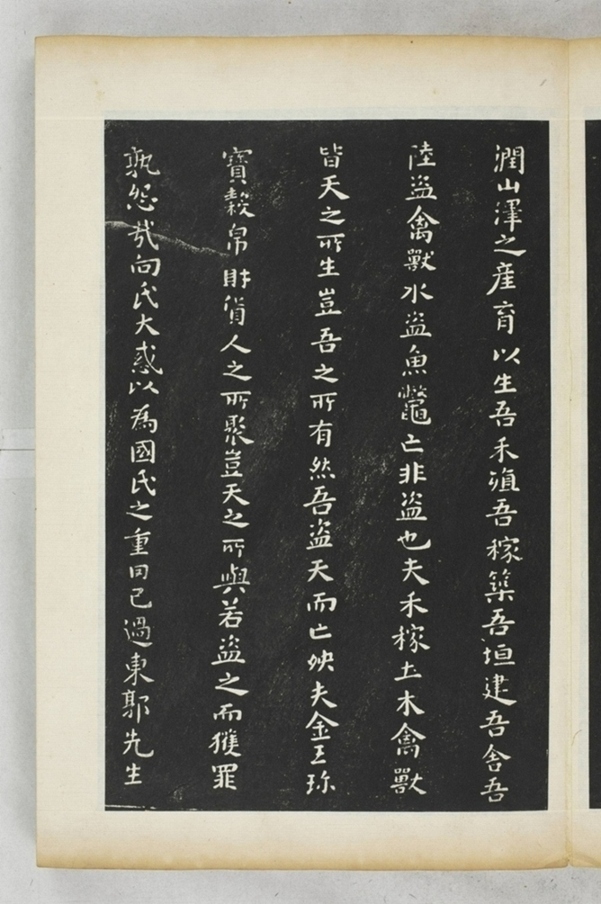 潤山澤之產育以生吾禾殖吾稼築吾垣建吾舍吾
陸盜禽獸水盜魚鼈亡非盜也夫禾稼土木禽獸
皆天之所生豈吾之所有然吾盜天而亡殃夫金玉珎
寶穀帛財貨人之所聚豈天之所與若盜之而獲罪
孰怨哉向氏大惑以為國氏之重罔己過東郭先生